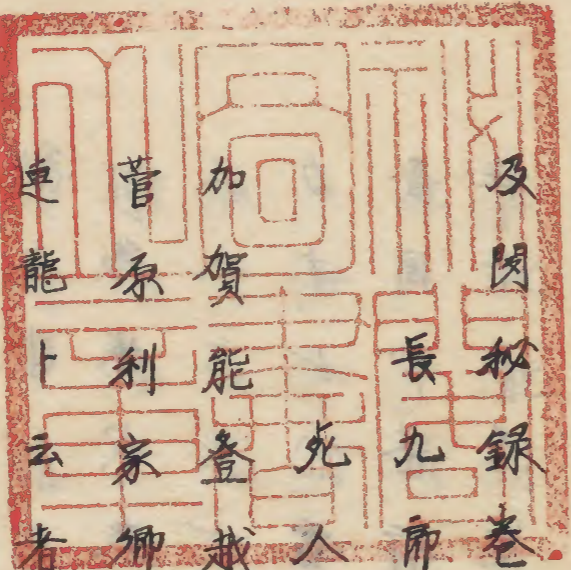 及閑秘録巻
長九郎
死人
加賀能登越
菅原利家卿
連龍ト云者